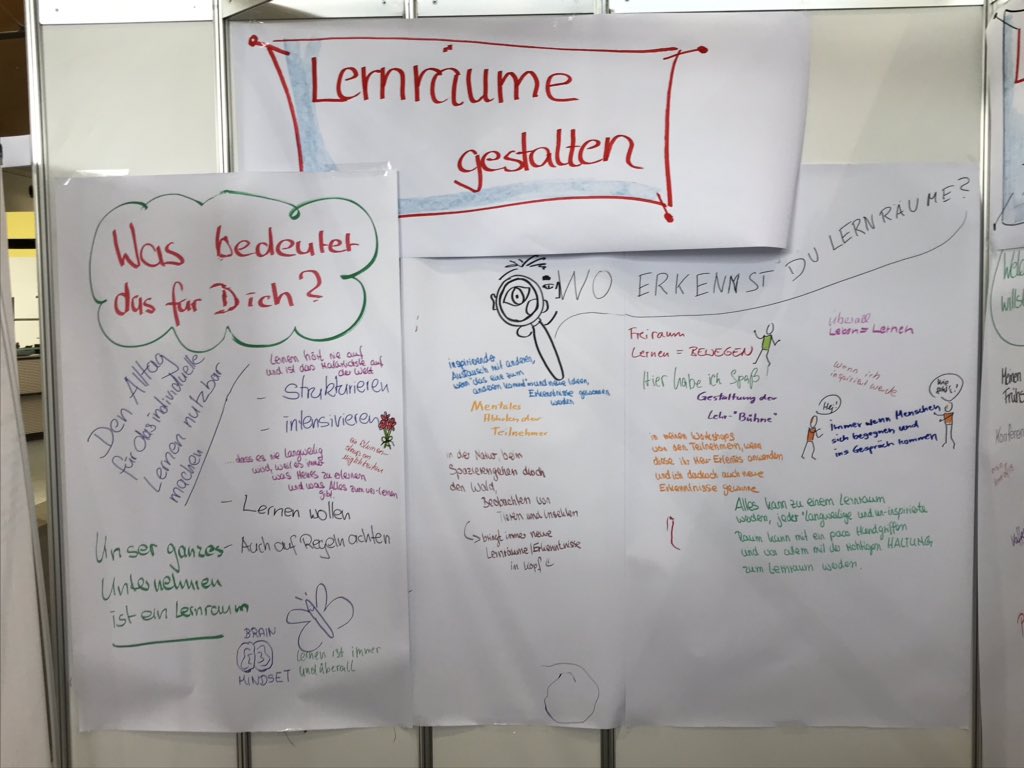 Lernräume
gestalten
Was bedeutet
das für Dich?
Den Alltag
für das individuelle
Lernen nutzbar
machen
Lernen hört nie auf
und ist das Natürlichste auf
der Welt
- Strukturieren
- intensivieren
... dass es nie langweilig
wird, weil es immer
was Neues zu erlernen
und was Altes zum ver-lernen
gibt
- Lernen wollen
- Auch auf Regeln achten
Unser ganzes
Unternehmen
ist ein Lernraum
BRAIN
MINDSET
Lernen ist immer
und überall
WO ERKENNST DU LERNRÄUME?
inspirierende
Austausch mit anderen,
wenn das eine zum
anderen kommt und neue Ideen,
Erkenntnisse gewonnen
werden
Mentales
Abholen der
Teilnehmer
in der Natur, beim
Spazierengehen durch
den Wald,
Beobachten von
Tieren und Insekten
bringt immer neue
Lernräume/Erkenntnisse
im Kopf
Freiraum
Lernen = BEWEGEN
Hier habe ich Spaß
Gestaltung der
Lehr-"Bühne"
in meinen Workshops
von den Teilnehmern, wenn
diese ihr Hier Erlerntes anwenden
und ich dadurch auch neue
Erkenntnisse gewinne
überall
Leben = Lernen
Wenn ich
inspiriert werde
Hey!
Immer wenn Menschen
sich begegnen und
ins Gespräch kommen
Alles kann zu einem Lernraum
werden, jeder "langweilige und un-inspirierte
Raum kann mit ein paar Handgriffen
und vor allem mit der richtigen HALTUNG
zum Lernraum werden.